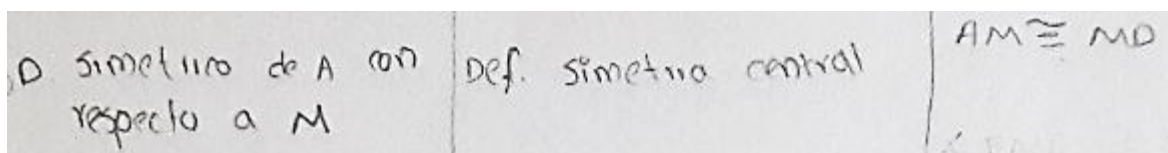 D simetrico de A con
respecto a M
Def. simetria central
AM ≅ MD